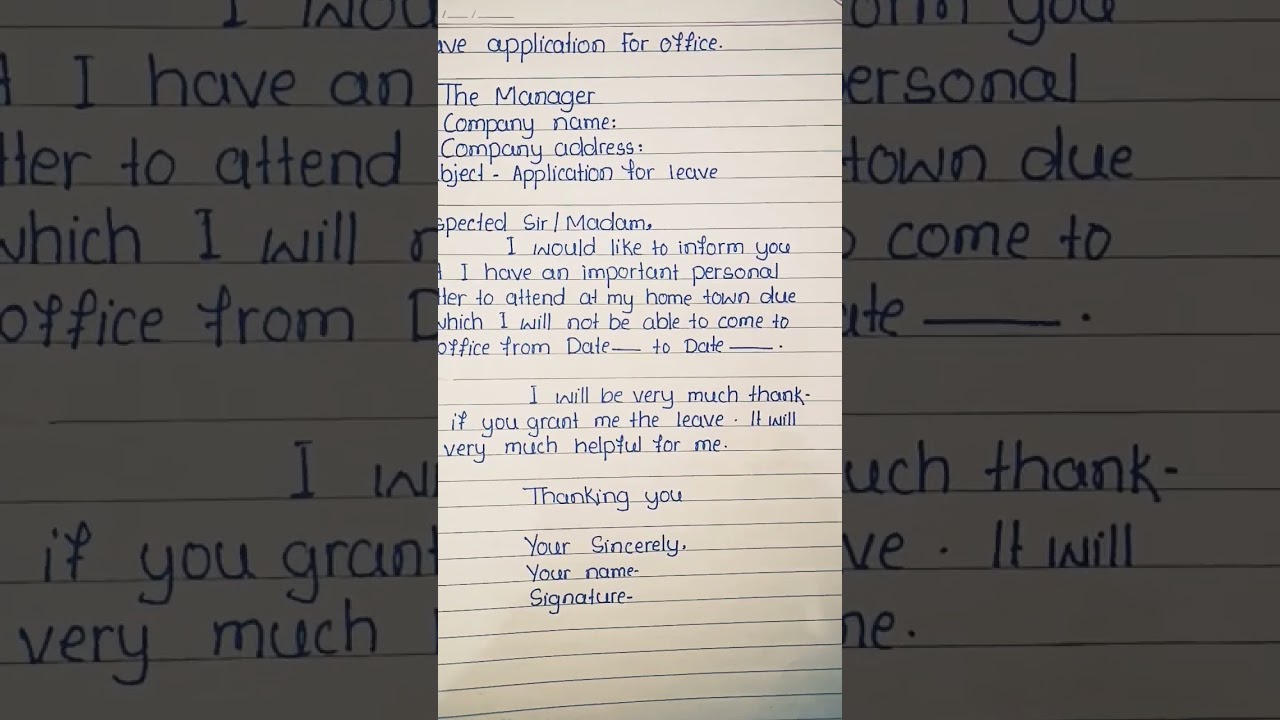 ave application for office.
The Manager
Company name:
Company address:
bject - Application for leave
spected Sir/Madam,
I would like to inform you
I have an important personal
tter to attend at my home town due
which I will not be able to come to
office from Date__ to Date ___.
I will be very much thank-
if you grant me the leave. It will
very much helpful for me.
Thanking you
Your Sincerely,
Your name-
Signature-